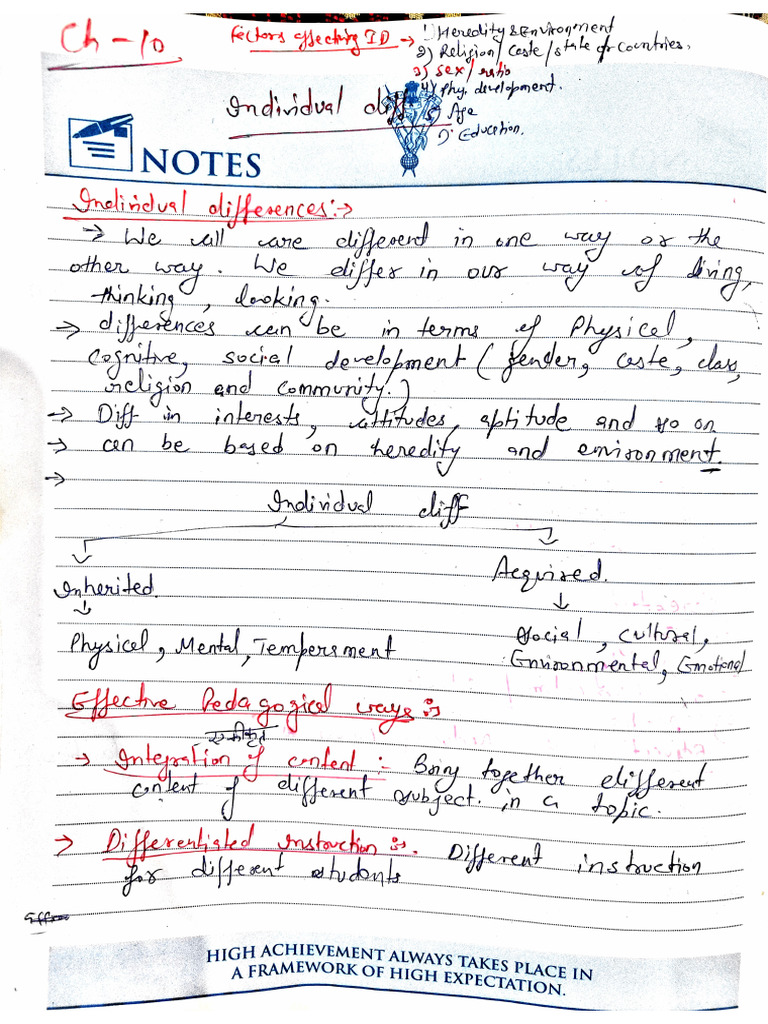 Ch-10
Factors affecting ID → 1) Heredity & Environment
2) Religion/ Caste/ state or countries.
3) Sex/ ratio
4) Phy. development.
5) Age
Education.
Individual diff
NOTES
Individual differences:→
→ We all are different in one way or the
other way. We differ in our way of living,
thinking, looking.
→ differences can be in terms of Physical,
Cognitive, social development (Gender, caste, class,
religion and community.)
→ Diff in interests, attitudes, aptitude and so on
→ can be based on heredity and environment.
→
Individual diff
Inherited. Acquired.
Physical, Mental, Temperament
Social, Cultural,
Environmental, Emotional
Effective Pedagogical ways:
एकीकृत
→ Integration of content: Bring together different
content of different subject. in a topic.
→ Differentiated instruction:. Different instruction
for different students
HIGH ACHIEVEMENT ALWAYS TAKES PLACE IN
A FRAMEWORK OF HIGH EXPECTATION.